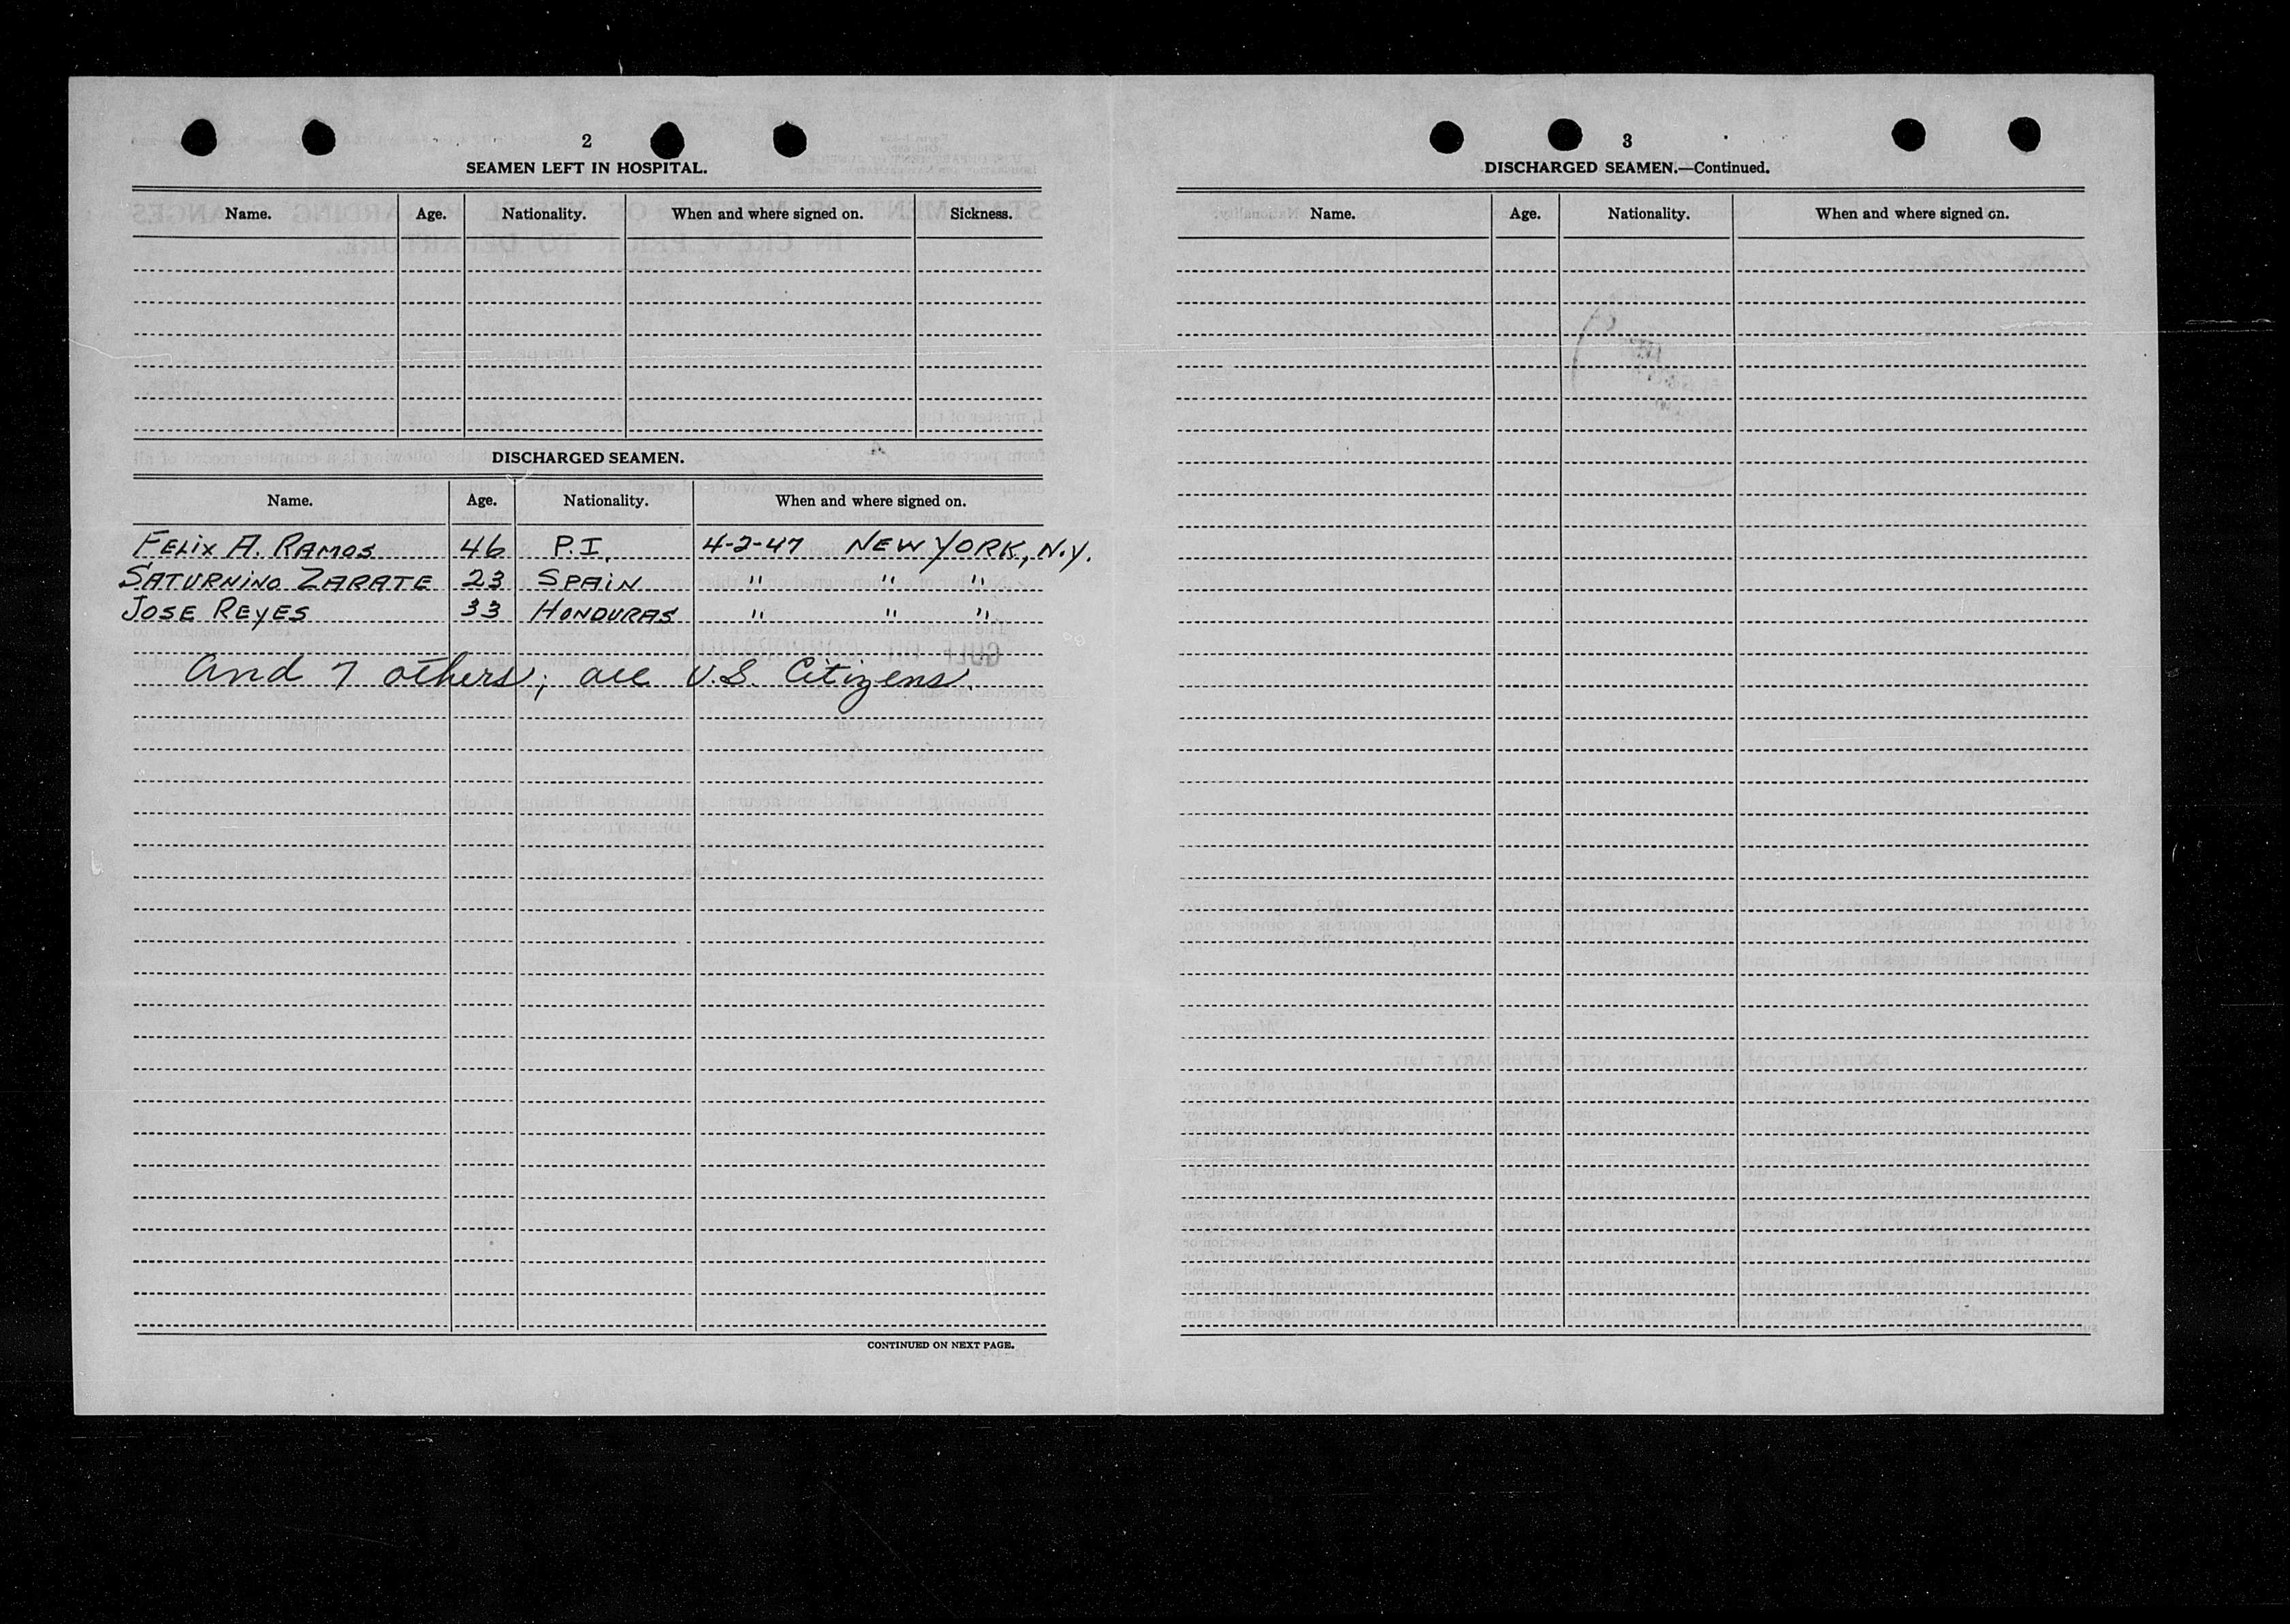 2
SEAMEN LEFT IN HOSPITAL.
Name. Age. Nationality. When and where signed on. Sickness.
DISCHARGED SEAMEN.
Name. Age. Nationality. When and where signed on.
FELIX A. RAMOS 46 P.I. 4-2-47 NEW YORK, N.Y.
SATURNINO ZARATE 23 SPAIN " " "
JOSE REYES 33 HONDURAS " " "
and 7 others; all U.S. Citizens.
CONTINUED ON NEXT PAGE.
3
DISCHARGED SEAMEN.—Continued.
Name. Age. Nationality. When and where signed on.